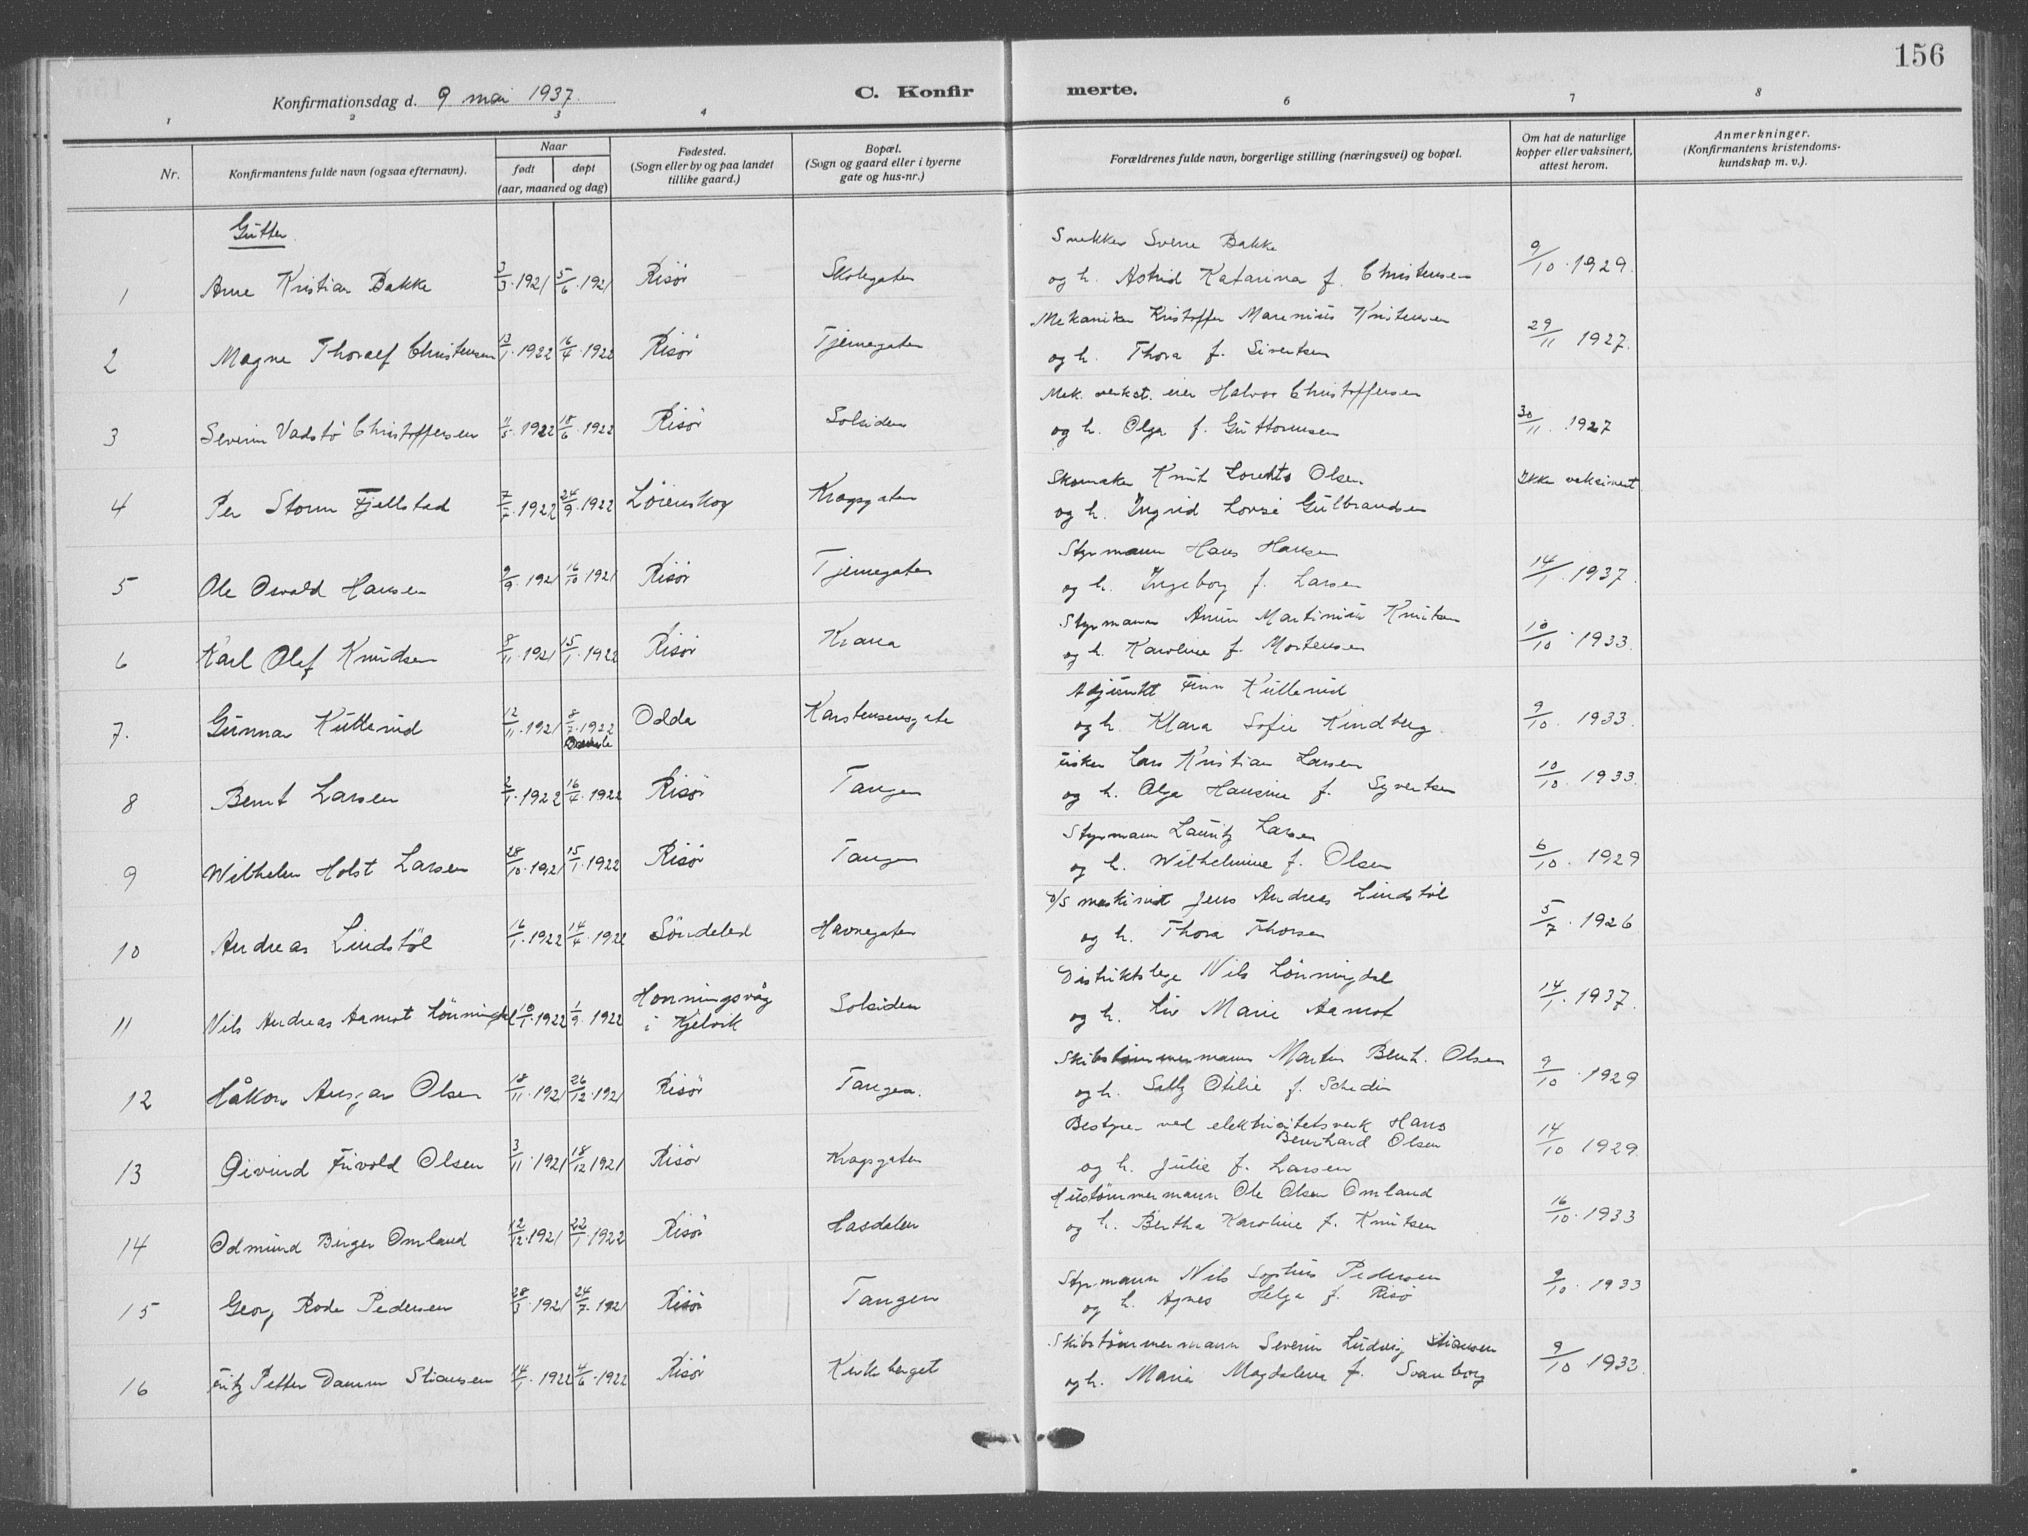 156
Konfirmationsdag d. 9 mai 1937.
C. Konfirmerte.
1 2 3 4 6 7 8
Nr.
Konfirmantens fulde navn (ogsaa efternavn).
Naar
født døpt
(aar, maaned og dag)
Fødested.
(Sogn eller by og paa landet
tillike gaard.)
Bopæl.
(Sogn og gaard eller i byerne
gate og hus-nr.)
Forældrenes fulde navn, borgerlige stilling (næringsvei) og bopæl.
Om hat de naturlige
kopper eller vaksinert,
attest herom.
Anmerkninger.
(Konfirmantens kristendoms-
kundskap m. v.).
Gutter.
Snekker Sverre Bakke
1 Arne Kristian Bakke 3/3 1921 5/6 1921 Risør Skolegaten og h. Astrid Katarina f. Christensen 9/10 1929.
Mekaniker Kristoffer Marenius Kristensen
2 Magne Thoralf Christensen 13/1 1922 16/4 1922 Risør Tjernegaten og h. Thora f. Sivertsen 29/11 1927.
Mek. verkst. eier Halvor Christoffersen
3 Severin Vadstø Christoffersen 11/5 1922 18/6 1922 Risør Solsiden og h. Olga f. Guttormsen 30/11 1927
Skomaker Knut Olsen Ikke vaksinert
4 Per Storm Fjellstad 7/7 1922 24/9 1922 Løienskog Kragsgaten og h. Ingrid Gulbrandsen
Styrmann Hans Hansen
5 Ole Osvald Hansen 9/9 1921 16/10 1921 Risør Tjernegaten og h. Ingeborg f. Larsen 14/1 1937.
Styrmann Martinius Knutsen
6 Karl Olaf Knudsen 8/11 1921 15/1 1922 Risør Krana og h. Karoline f. Mortensen 10/10 1933.
Adjunkt Finn Kullerud
7. Gunnar Kullerud 12/11 1921 8/7 1922 Odda Karstensensgate og h. Klara Sofie Kindberg. 9/10 1933.
Fisker Lars Kristian Larsen
8 Bernt Larsen 2/1 1922 16/4 1922 Risør Tangen og h. Olga Hansine f. Syvertsen 10/10 1933.
Styrmann Lauritz Larsen
9 Wilhelm Holst Larsen 28/10 1921 15/1 1922 Risør Tangen og h. Wilhelmine f. Olsen 6/10 1929
D/S maskinist Jens Andreas Lindstøl
10 Andreas Lindstøl 16/1 1922 14/4 1922 Søndeled Havnegaten og h. Thora Thorsen 5/7 1926
Distriktslege Nils Lønningdal
11 Nils Andreas Aamot Lønningdal 18/1 1922 1/9 1922 Honningsvåg Solsiden og h. Liv Marie Aamot 14/1 1937.
i Kjelvik
Skibstømmermann Martin Bernh. Olsen
12 Håkon Ansgar Olsen 18/11 1921 26/12 1921 Risør Tangen. og h. Sally Otilie f. Schedin 9/10 1929
Bestyrer ved elektricitetsverk Hans
Bernhard Olsen
13 Øivind Frivold Olsen 3/11 1921 18/12 1921 Risør Kragsgaten og h. Julie f. Larsen 14/10 1929.
Hustømmermann Ole Olsen Omland
14 Odmund Birger Omland 12/12 1921 22/1 1922 Risør Hasdalen og h. Bertha Karoline f. Knutsen 16/10 1933
Styrmann Nils Sophus Pedersen
15 Georg Rode Pedersen 28/3 1921 24/7 1921 Risør Tangen og h. Agnes Helga f. Risø 9/10 1933
Skibstømmermann Severin Ludvig Stiansen
16 Fritz Petter Damm Stiansen 14/1 1922 4/6 1922 Risør Kirkeberget og h. Maria Magdalena f. Svanborg 9/10 1933.